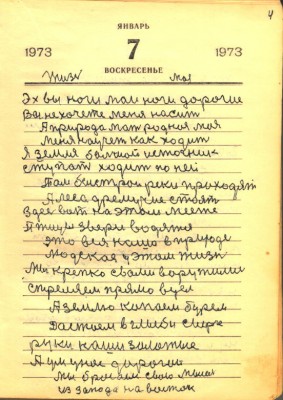 4
ЯНВАРЬ
1973 7 1973
ВОСКРЕСЕНЬЕ
Жизь моя
Эх вы ноги мои ноги дорогие
Вы не хочете меня насит
А природа мат родная моя
Меня научет как ходит
А земля балшой источник
ступат ходит по ней
Там быстрои реки приходят
А леса дремучие стоят
Здес вот на этом месте
Птици звери водятся
Это вся наша в природе
Людская у этом жизн
Мы крепко свами
стремлем прямо
А землю копаем бурем
Достаем
руки наши золотие
А ум у нас дорогой
Мы бросаем свою
из запода на васток